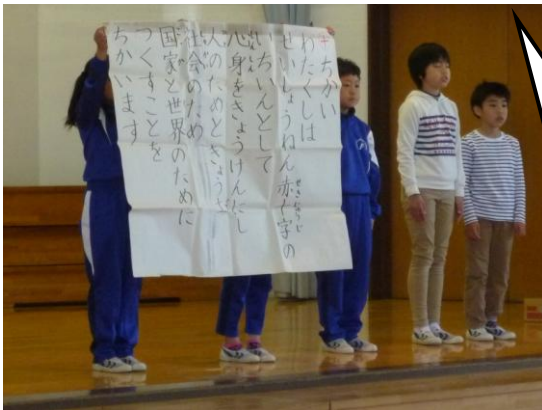 ちかい
わたくしは
せいしょうねん赤十字の
いちいんとして
心身をきょうけんにし
人のためときょうど
社会のため
国家と世界のために
つくすことを
ちかいます